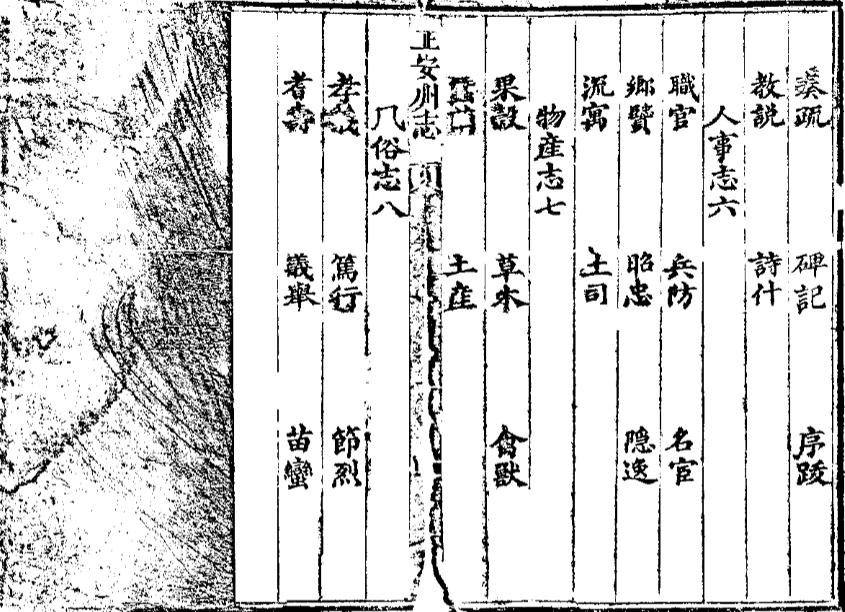 奏疏 碑記 序跋
教説 詩什
人事志六
職官 兵防 名宦
鄉賢 昭忠 隠逸
流寓 土司
物産志七
果穀 草木 禽獸
土産
正安州志
風俗志八
孝義 篤行 節烈
耆壽 義舉 苗蠻